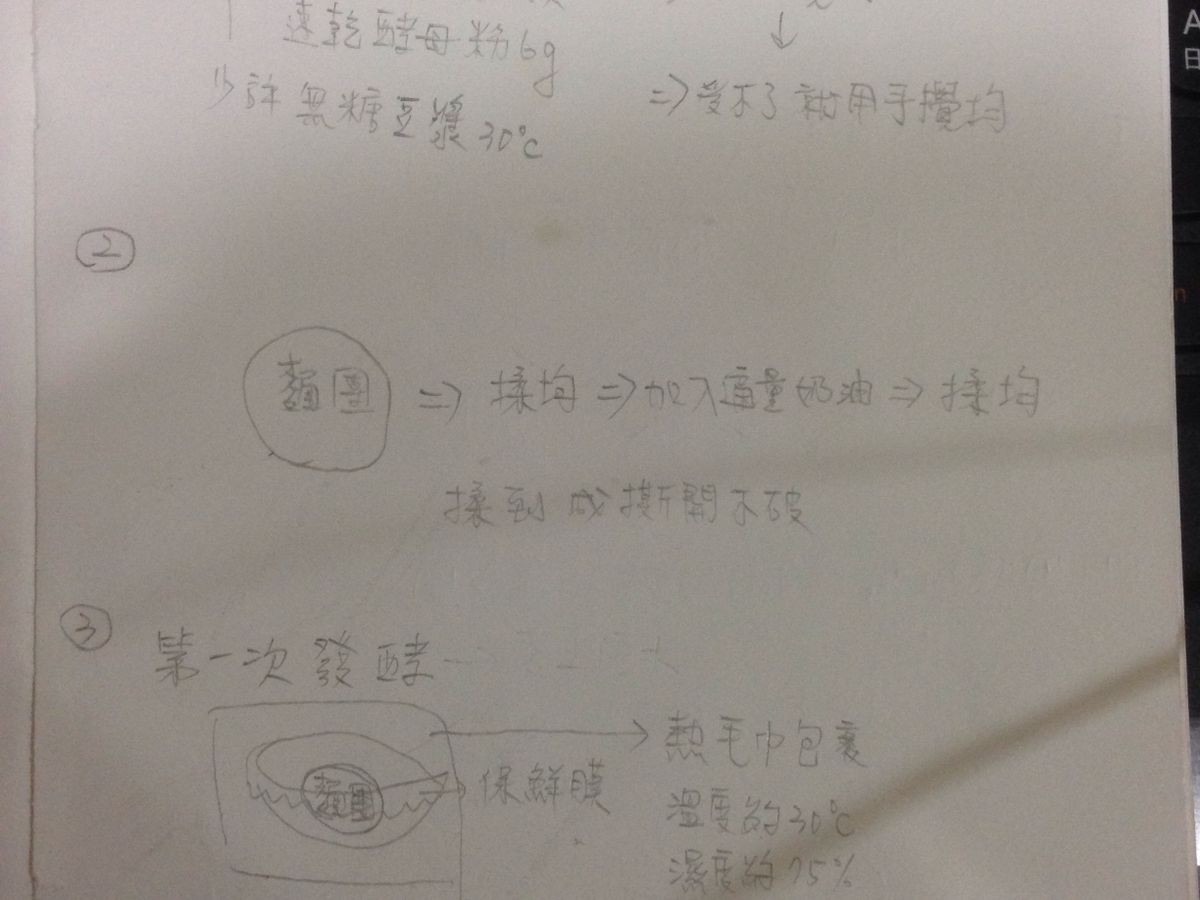 速乾酵母粉6g
少許無糖豆漿30℃
↓
⇒受不了就用手攪均
②
麵團 ⇒ 揉均 ⇒加入適量奶油⇒ 揉均
揉到成撕開不破
③
第一次發酵
麵團
保鮮膜
熱毛巾包裹
溫度約30℃
濕度約75%
A
日